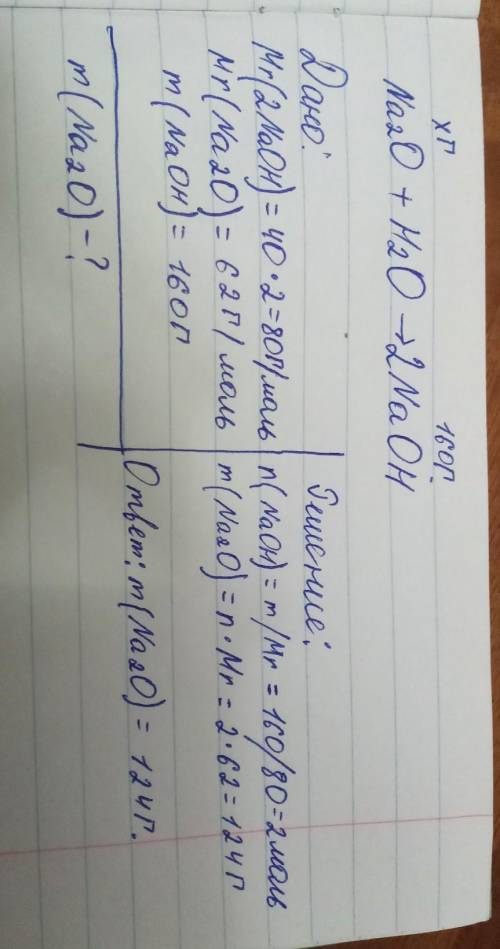 хг 160г.
Na₂O + H₂O → 2NaOH
Дано:
Mr(2NaOH) = 40·2=80г/моль
Mr(Na₂O) = 62г/моль
m(NaOH) = 160г
m(Na₂O) - ?
Решение:
n(NaOH) = m/Mr = 160/80=2моль
m(Na₂O) = n·Mr = 2·62=124г
Ответ: m(Na₂O) = 124г.